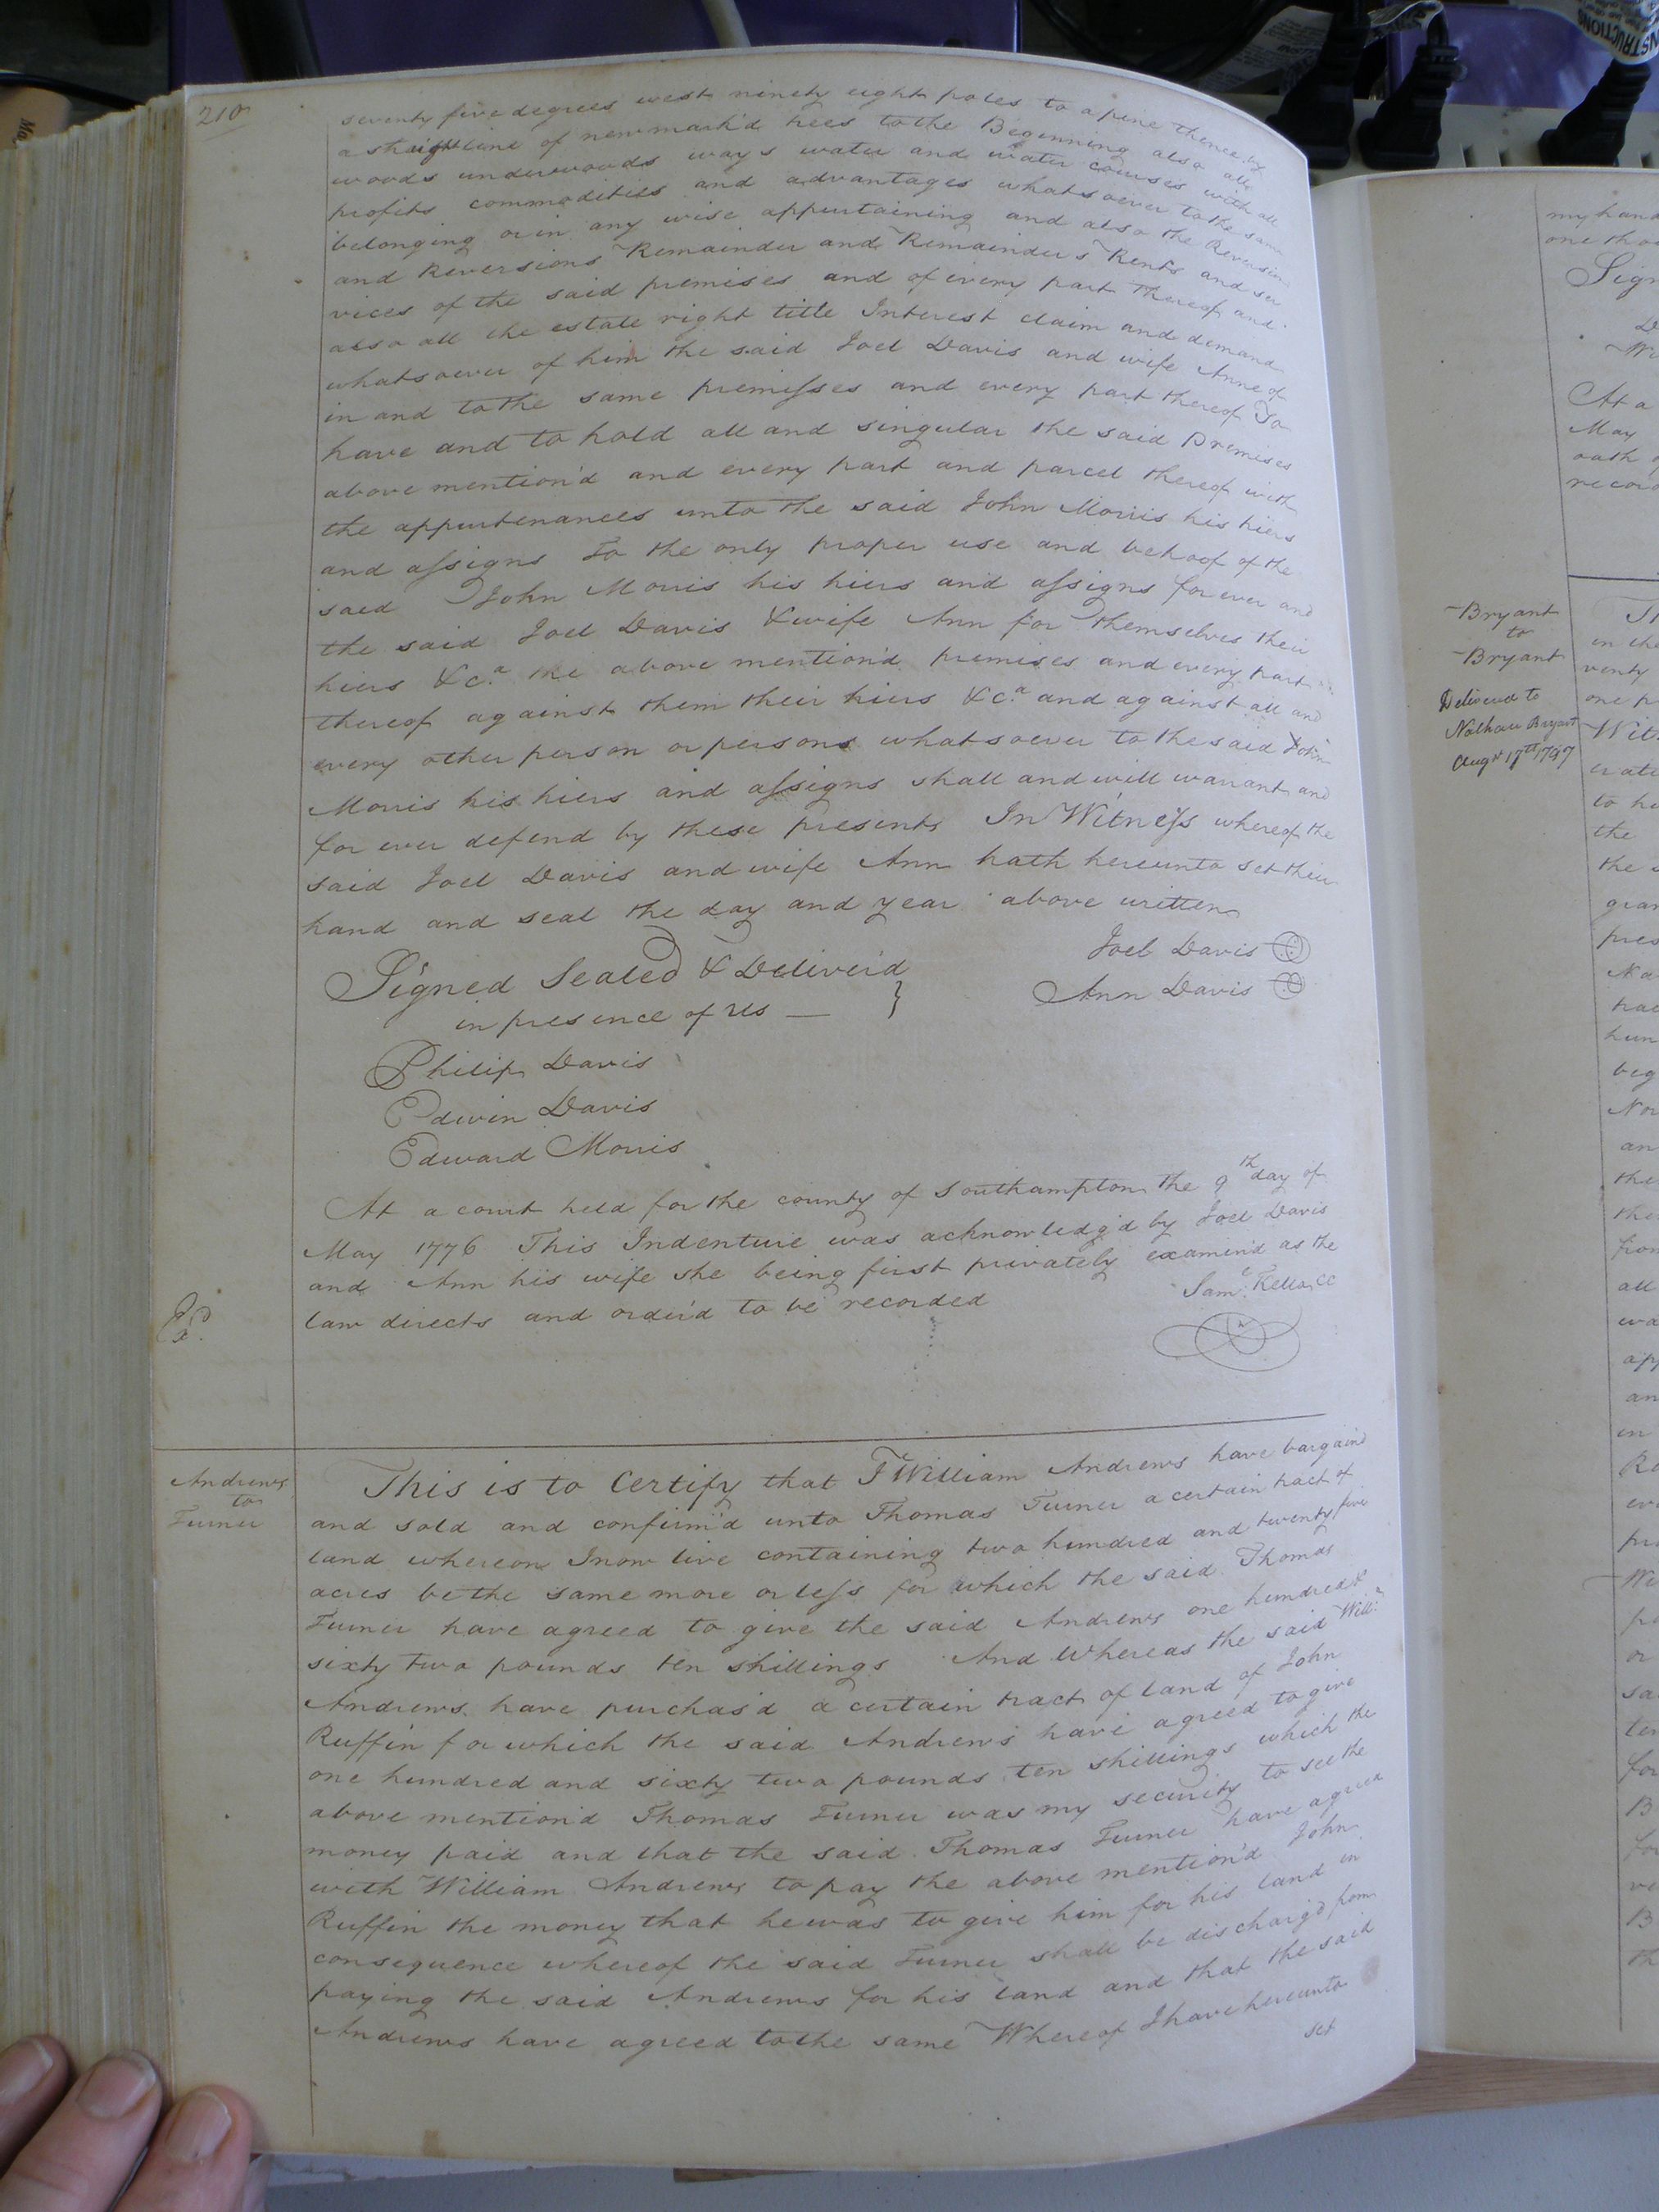 210
seventy five degrees west ninety eight poles to a pine thence by
a straight line of new mark'd trees to the Beginning also all
woods underwoods ways water and water courses with all
profits commodities and advantages whatsoever to the same
belonging or in any wise appurtaining and also the Reversion
and Reversions Remainder and Remainders Rents and ser
vices of the said premises and of every part thereof and
also all the estate right title Interest claim and demand
whatsoever of him the said Joel Davis and wife Anne of
in and to the same premisses and every part thereof To
have and to hold all and singular the said Premises
above mention'd and every part and parcel thereof with
the appurtenances unto the said John Morris his hiers
and assigns To the only proper use and behoof of the
said John Morris his hiers and assigns for ever and
the said Joel Davis & wife Ann for themselves their
hiers &c.a the above mention'd premises and every part
thereof against them their hiers &c.a and against all and
every other person or persons whatsoever to the said John
Morris his hiers and assigns shall and will warrant and
for ever defend by these presents In Witness whereof the
said Joel Davis and wife Ann hath hereunto set their
hand and seal the day and year above written
Joel Davis
Signed Sealed & Deliver'd
Ann Davis
in presence of us
Philip Davis
Edwin Davis
Edward Morris
At a court held for the county of Southampton the 9th day of
May 1776 This Indenture was acknowledg'd by Joel Davis
and Ann his wife she being first privately examin'd as the
law directs and order'd to be recorded
Saml. Kello CC
Ex.
Andrews
to
Turner
This is to Certify that I William Andrews have bargain'd
and sold and confirm'd unto Thomas Turner a certain tract of
land whereon I now live containing two hundred and twenty five
acres be the same more or less for which the said Thomas
Turner have agreed to give the said Andrews one hundred &
sixty two pounds ten shillings And Whereas the said Willi:
Andrews have purchas'd a certain tract of land of John
Ruffin for which the said Andrews have agreed to give
one hundred and sixty two pounds ten shillings which the
above mention'd Thomas Turner was my security to see the
money paid and that the said Thomas Turner have agreed
with William Andrews to pay the above mention'd John
Ruffin the money that he was to give him for his land in
consequence whereof the said Turner shall be discharg'd from
paying the said Andrews for his land and that the said
Andrews have agreed to the same Whereof I have hereunto
set
my hand
Sign
At a
May
oath
record
Bryant
to
Bryant
Deliver'd to
Nathan Bryant
Augst 17th 1797
in the
venty
one p
Wit
to h
the
the s
gran
pres
Na
trac
hun
beg
Nor
an
the
the
from
all
wa
app
an
in
Re
ev
pr
Wi
pa
or
sa
ten
for
B
for
ve
B
th